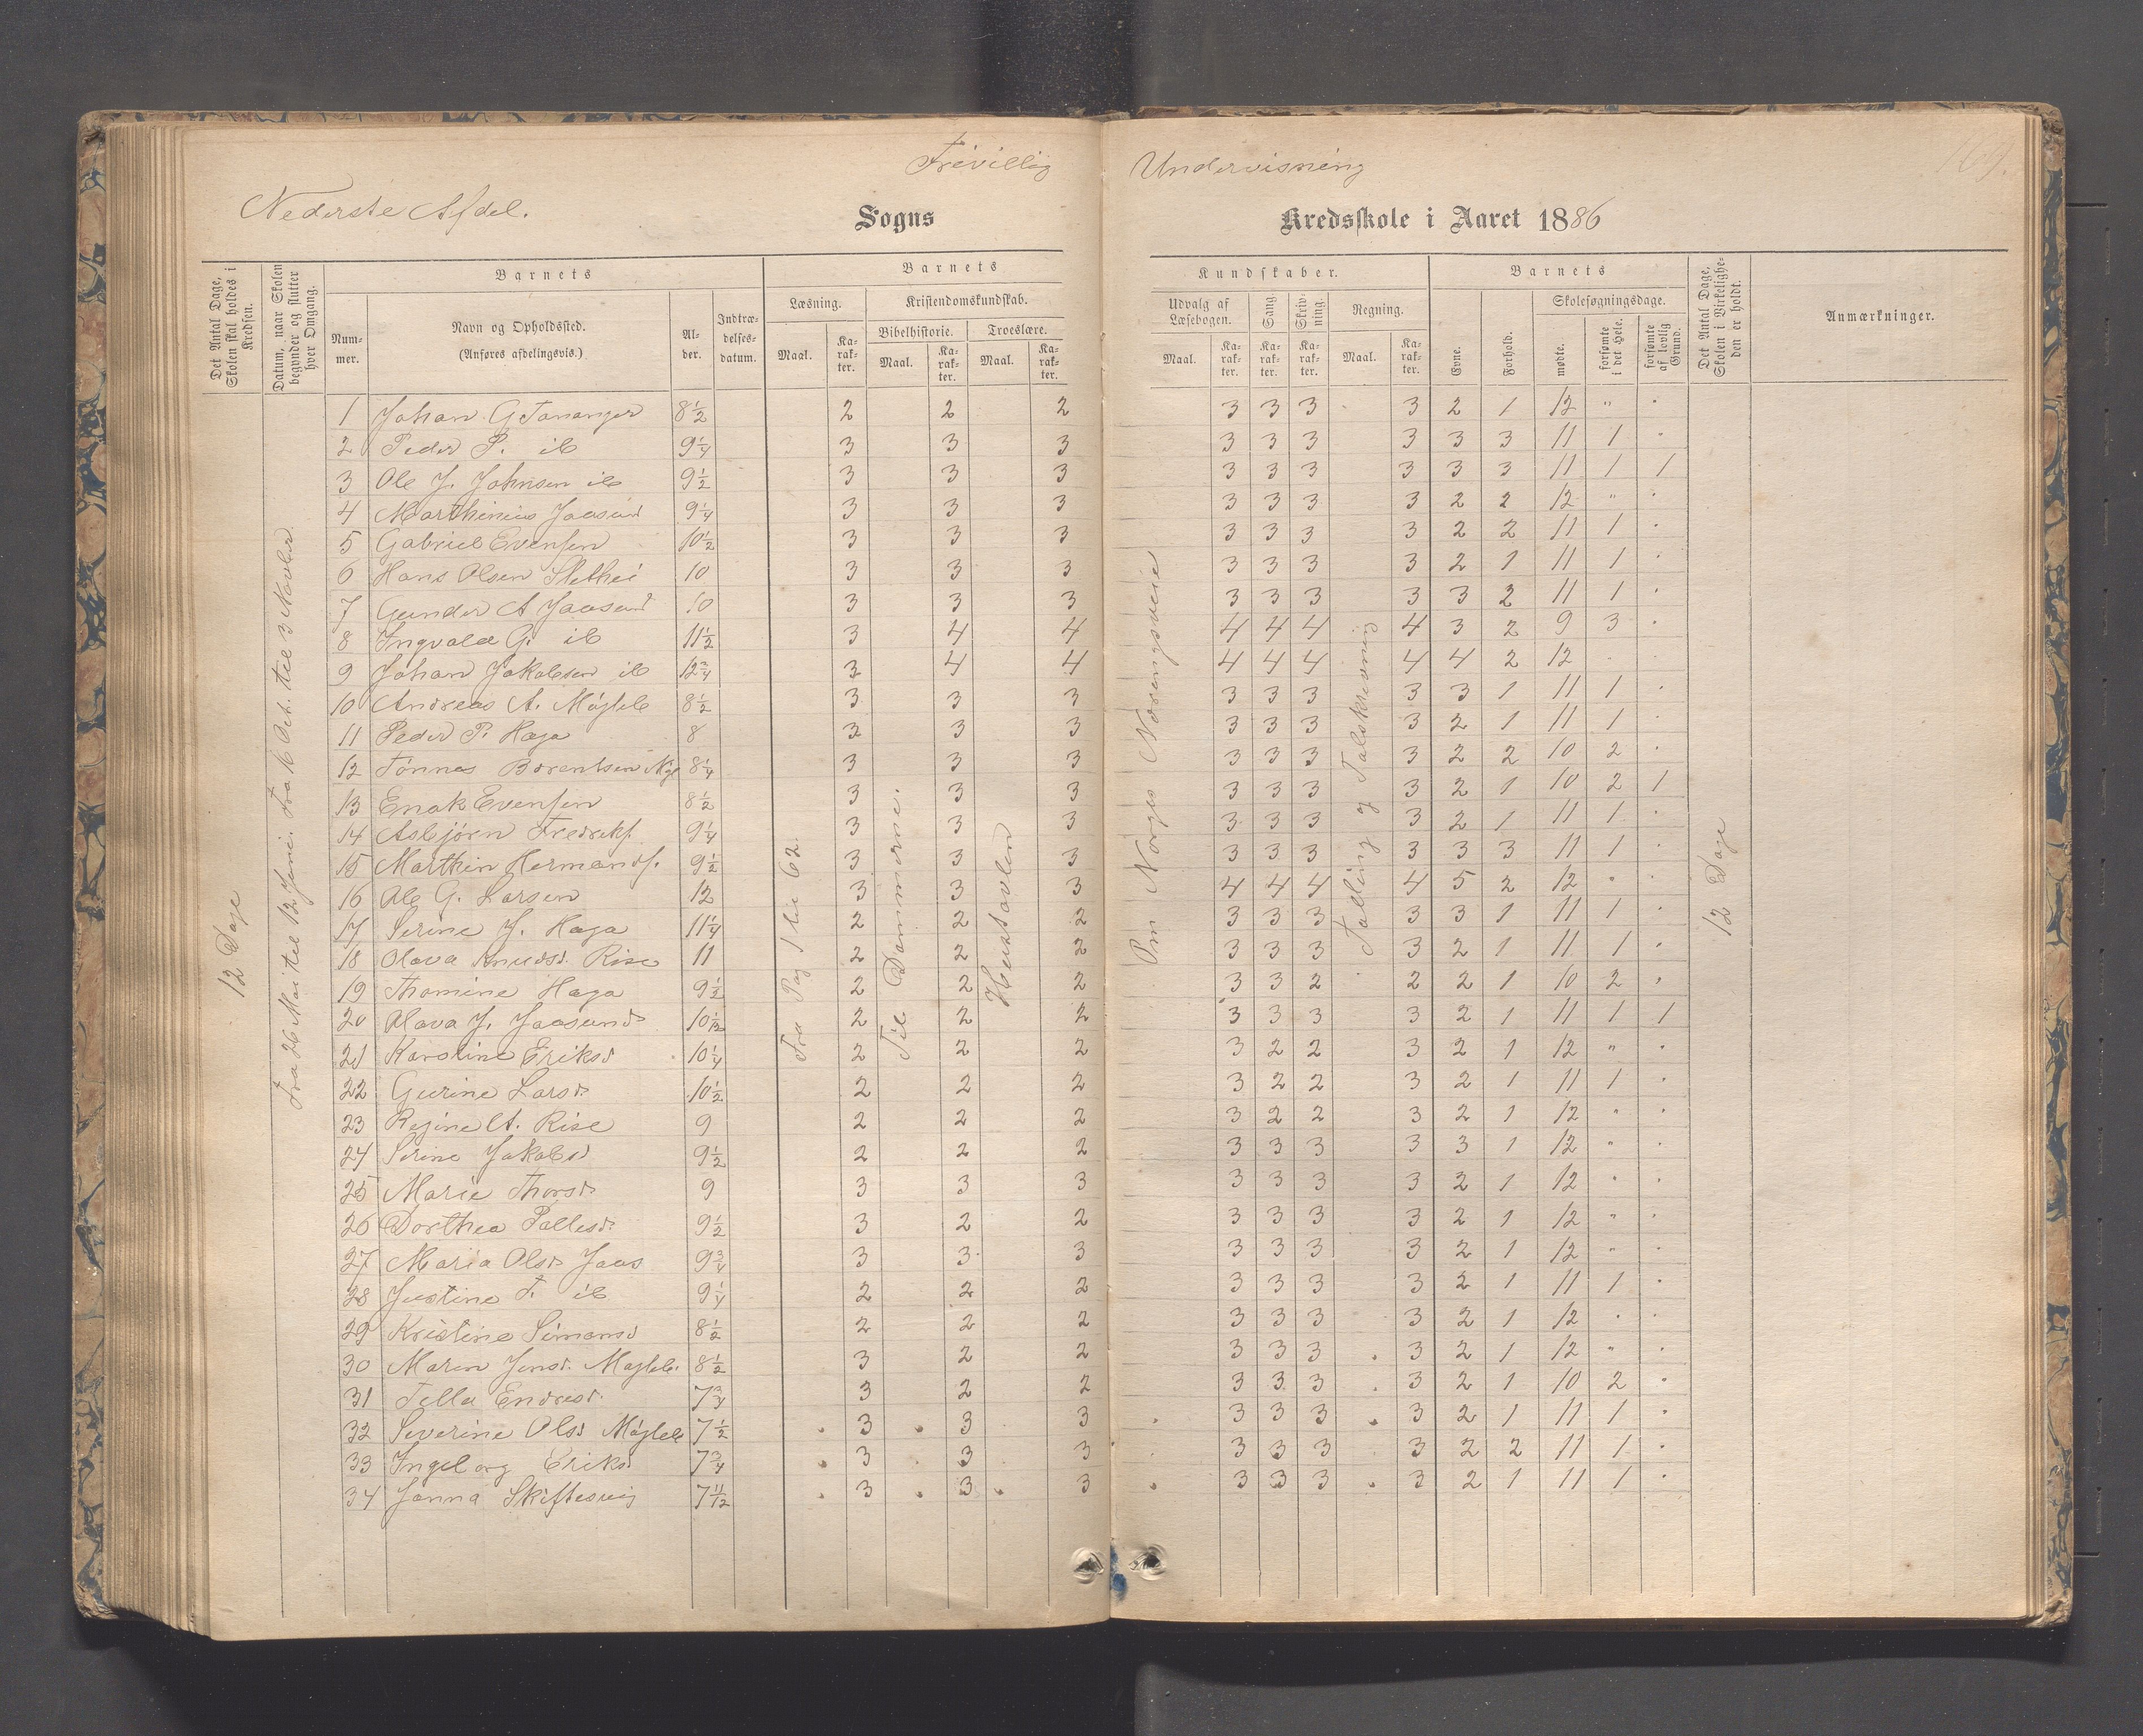 Frivillig Undervisning
169.
Nederste Afdel.
Sogns Kredsskole i Aaret 1886
Det Antal Dage, Skolen skal holdes i Kredsen.
Datum, naar Skolen begynder og slutter hver Omgang.
Barnets
Nummer.
Navn og Opholdssted.
(Anføres afdelingsvis.)
Alder.
Indtrædelsesdatum.
Barnets Kundskaber.
Læsning.
Kristendomskundskab.
Bibelhistorie.
Troeslære.
Udvalg af Læsebogen.
Sang.
Skrivning.
Regning.
Maal.
Karakter.
Barnets
Evne.
Forhold.
Skolesøgningsdage.
mødte.
forsømte i det Hele.
forsømte af lovlig Grund.
Det Antal Dage, Skolen i Virkeligheden er holdt.
Anmærkninger.
12 Dage
Fra 26 Mai til 12 Juni. Fra 16 Oct. til 3 Novber
Fra Pag 1 til 62
Til Dommerne.
Hustavlen
Om Norges Næringsveie
Talling og Talskrivning
12 Dage
1 Johan G Tananger 8½ 2 2 2 3 3 3 3 2 1 12 " "
2 Peder P. ib 9¼ 3 3 3 3 3 3 3 3 3 11 1 "
3 Ole J. Johnsen ib 9½ 3 3 3 3 3 3 3 3 3 11 1 1
4 Marthinius Jaasund 9¼ 3 3 3 3 3 3 3 2 2 12 " "
5 Gabriel Evensen 10½ 3 3 3 3 3 3 3 2 2 11 1 "
6 Hans Olsen Slethei 10 3 3 3 3 3 3 3 2 1 11 1 "
7 Gunder A Jaasund 10 3 3 3 3 3 3 3 3 2 11 1 "
8 Ingvald G. ib 11½ 3 4 4 4 4 4 4 3 2 9 3 "
9 Johan Jakobsen ib 12¾ 3 4 4 4 4 4 4 4 2 12 " "
10 Andreas A. Møgleb 8½ 3 3 3 3 3 3 3 3 1 11 1 "
11 Peder P. Haga 8 3 3 3 3 3 3 3 2 1 11 1 "
12 Tønnes Bærentsen Mgl 8¼ 3 3 3 3 3 3 3 2 2 10 2 "
13 Enok Evensen 8½ 3 3 3 3 3 3 3 2 1 10 2 1
14 Asbjørn Fredriks. 9¼ 3 3 3 3 3 3 3 2 1 11 1 "
15 Marthin Hermands. 9½ 3 3 3 3 3 3 3 3 3 11 1 "
16 Ole G. Larsen 12 3 3 3 4 4 4 4 5 2 12 " "
17 Serine J. Haga 11¼ 2 2 2 3 3 3 3 3 1 11 1 "
18 Olava Knudsd. Rise 11 2 2 2 3 3 3 3 2 1 11 1 "
19 Thomine Haga 9½ 2 2 2 3 3 2 2 2 1 10 2 "
20 Olava J. Jaasund 10 1/12 2 2 2 3 3 3 3 2 1 11 1 1
21 Karoline Eriksd 10¼ 2 2 2 3 2 2 3 2 1 12 " "
22 Gurine Larsd. 10½ 2 2 2 3 2 2 3 2 1 11 1 "
23 Regine A. Rise 9 2 2 2 3 2 2 3 2 1 12 " "
24 Serine Jakobsd 9½ 2 2 2 3 3 3 3 3 1 12 " "
25 Marie Thorsd. 9 3 3 3 3 3 3 3 2 1 12 " "
26 Dorthea Pallesd. 9½ 3 2 2 3 3 3 3 2 1 12 " "
27 Maria Olsd. Jaas 9¾ 3 3 3 3 3 3 3 2 1 12 " "
28 Justine T. ib 9¼ 2 2 2 3 3 3 3 2 1 11 1 "
29 Kristine Simonsd 8½ 2 2 2 3 3 3 3 2 1 12 " "
30 Maren Jensd. Mogleb. 8½ 3 2 2 3 3 3 3 2 1 12 " "
31 Tella Endresd. 7¾ 3 2 2 3 3 3 3 2 1 10 2 "
32 Severine Olsd Møgleb 7½ 3 3 3 3 3 3 3 2 1 11 1 "
33 Ingeborg Eriksd 7¾ 3 3 3 3 3 3 3 2 2 11 1 "
34 Janna Skiftesvig 7 11/12 3 3 3 3 3 3 3 2 1 11 1 "